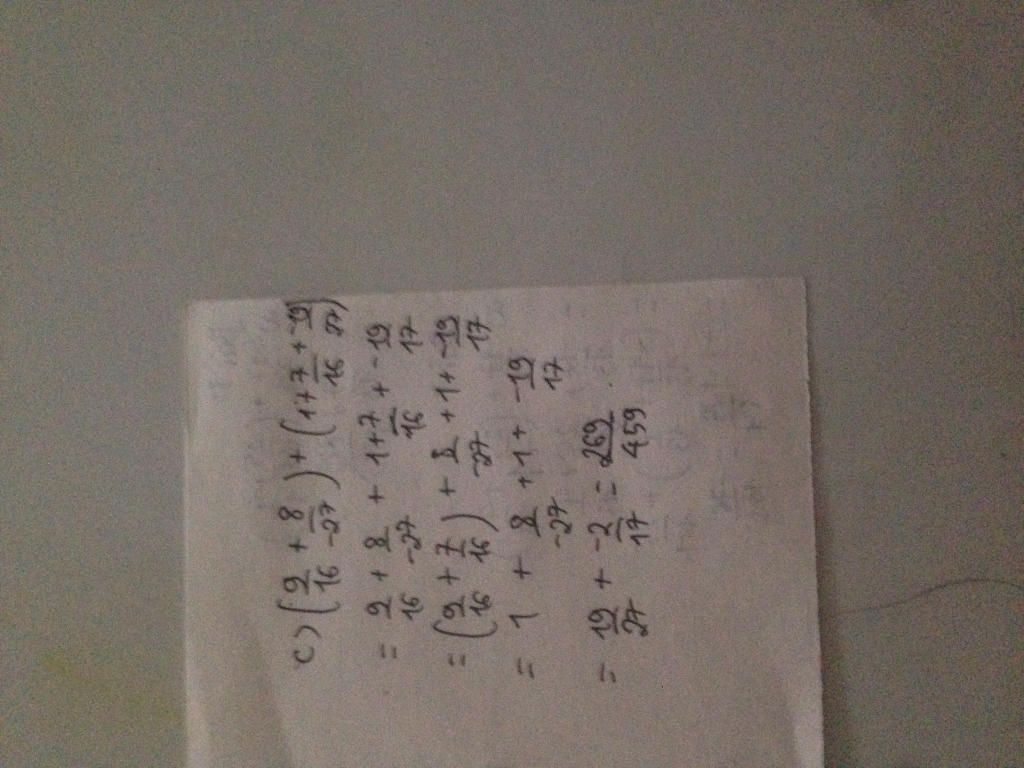 c) (9/16 + 8/-27) + (1+7/16 + -19/27)
= 9/16 + 8/-27 + 1+7/16 + -19/17
= (9/16 + 7/16) + 8/-27 + 1 + -19/17
= 1 + 8/-27 + 1 + -19/17
= 19/27 + -2/17 = 269/459